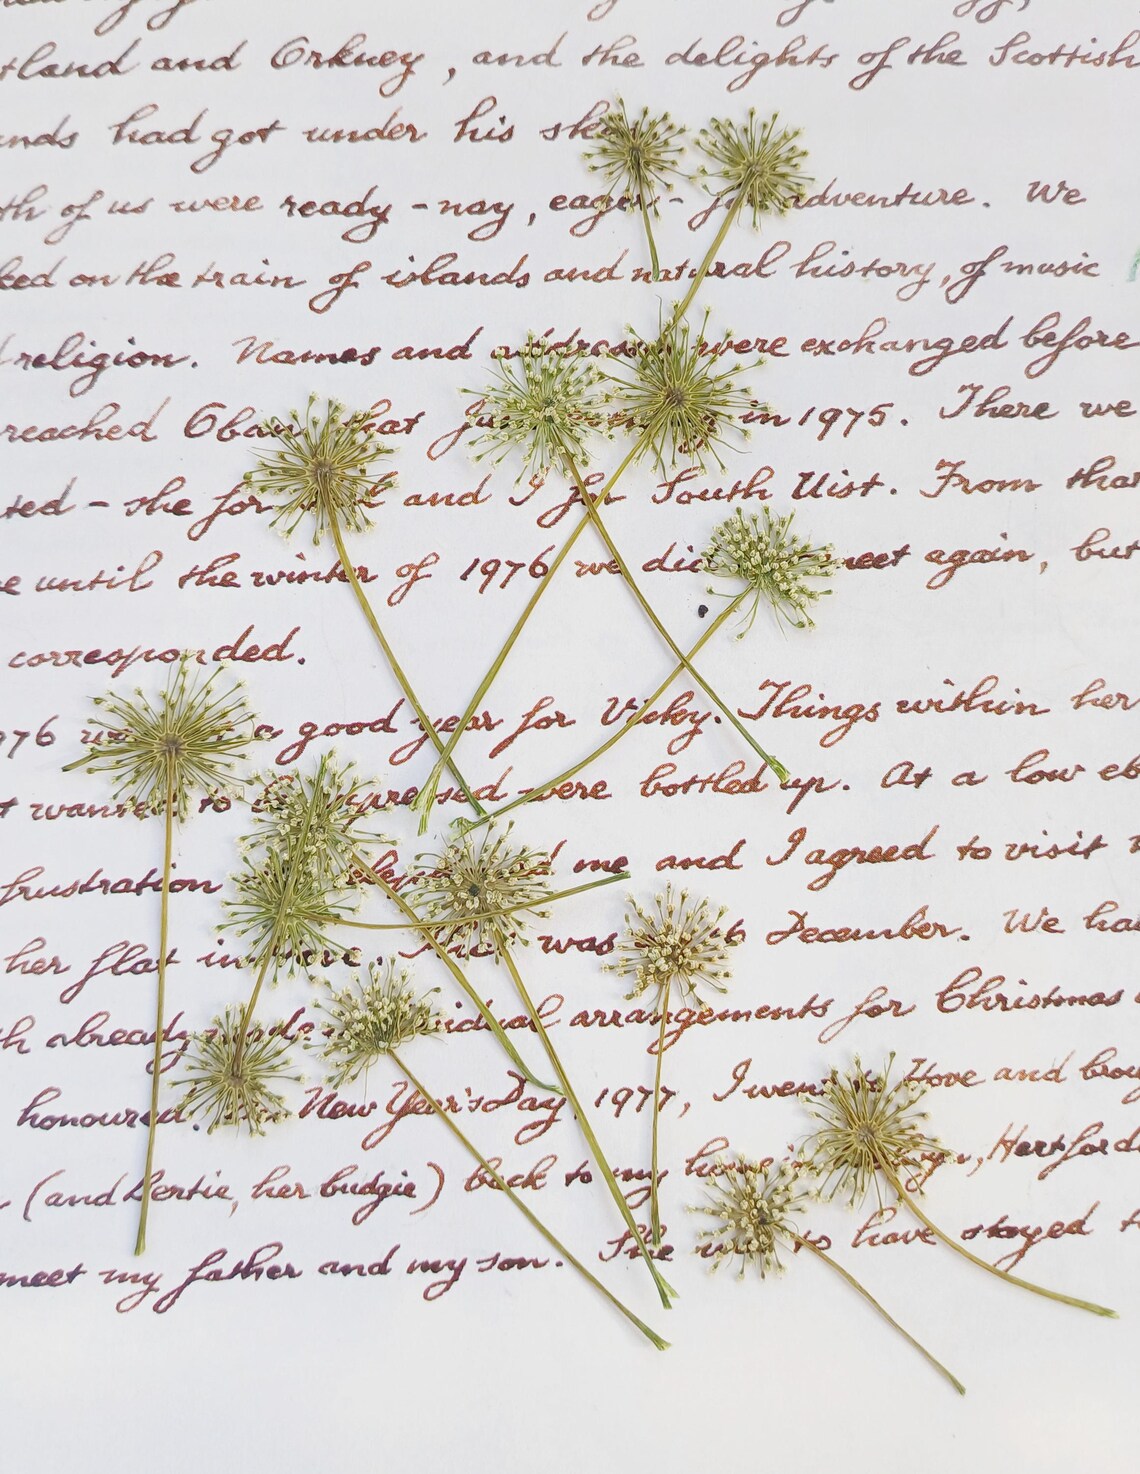 tland and Orkney, and the delights of the Scottish
nds had got under his
th of us were ready - nay, eager - adventure. We
ked on the train of islands and natural history, of music
religion. Names and addresses were exchanged before
reached Oban that in 1975. There we
ted - she for and I for South Uist. From that
e until the winter of 1976 we did meet again, but
corresponded.
976 a good year for Vicky. Things within her
t wanted to expressed were bottled up. At a low eb
frustration me and I agreed to visit
her flat in Hove. This was December. We had
h already made individual arrangements for Christmas
honoured. New Year's Day, 1977, I went to Hove and brou
(and Bertie, her budgie) back to my home in Hertfords
meet my father and my son. She was to have stayed